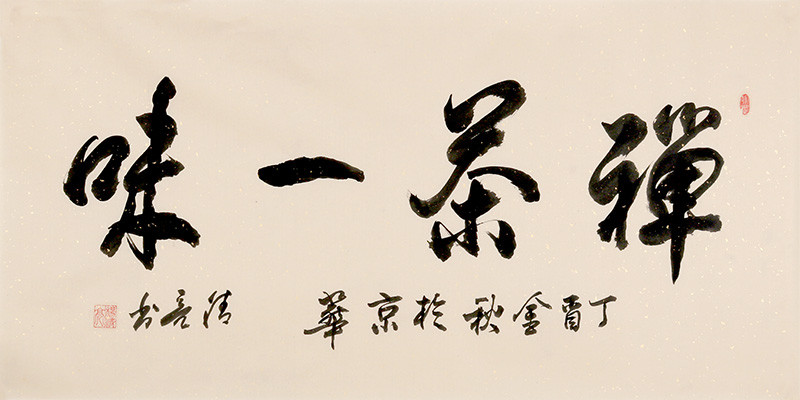 禪茶一味
丁酉金秋於京華
清亮书